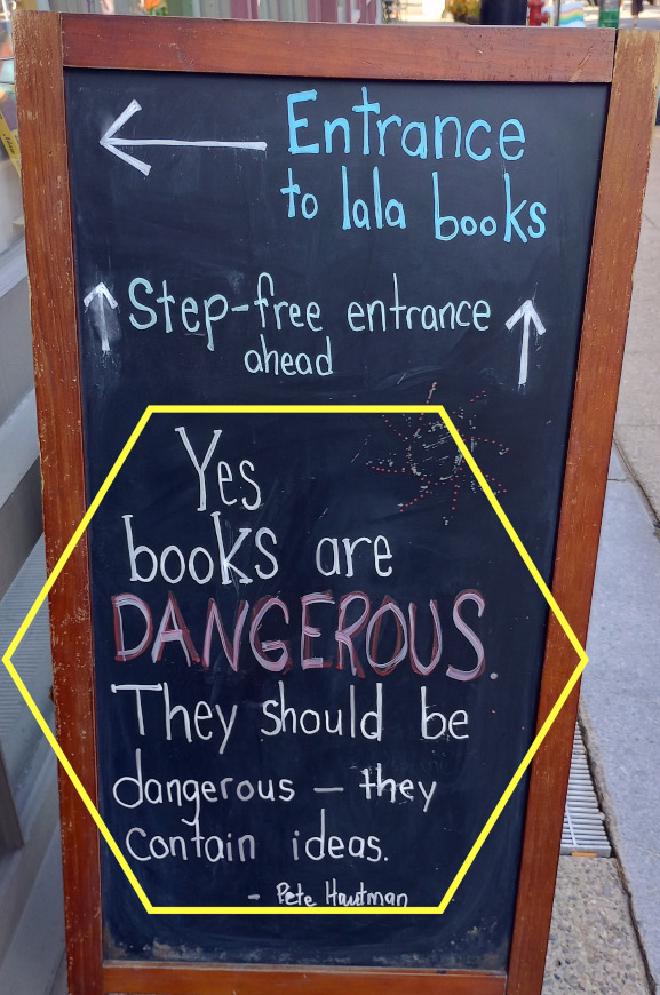 Entrance
to lala books
Step-free entrance
ahead
Yes
books are
DANGEROUS.
They should be
dangerous — they
contain ideas.
- Pete Hautman